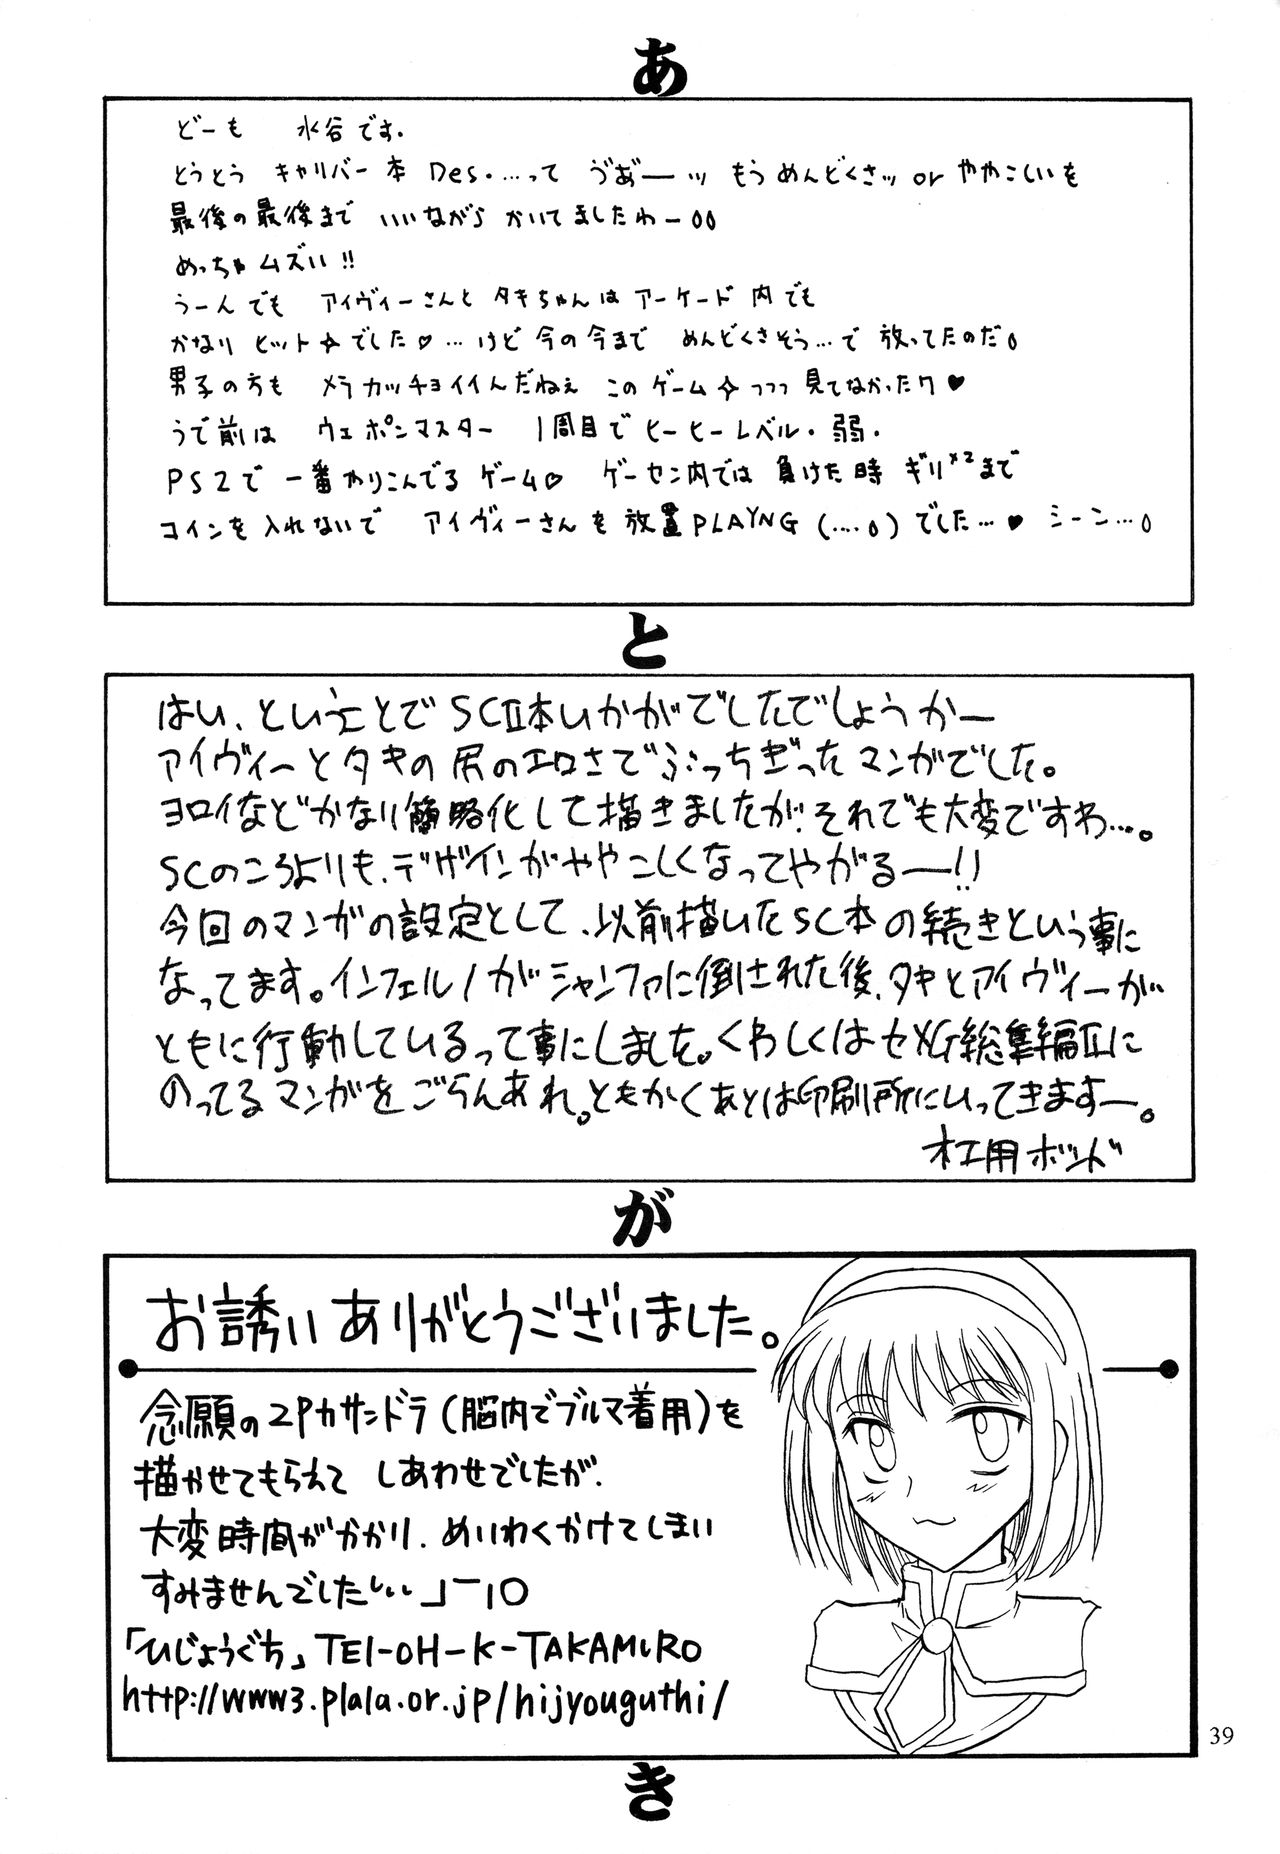 あ
どーも 水谷です.
とうとう キャリバー 本 Des.…って ゔあ゛ーッ もう めんどくさッ or ややこしい も
最後の最後まで いいながら かいてましたわー00
めっちゃ ムズい!!
うーん でも アイヴィーさんと タキちゃんは アーケード 内でも
かなり ヒット☆でした♡…けど 今の今まで めんどくさそう…で 放ってたのだ。
男子の方も メラ カッチョイイんだねぇ このゲーム☆っつっ 見てなかったワ♥
うで前は ウェポンマスター 1周目で ヒーヒーレベル・弱.
PS2で 一番やりこんでる ゲーム♡ ゲーセン内では 負けた時 ギリ×2まで
コインを入れないで アイヴィーさんを 放置PLAYNG (….0) でした…♥ シーン…0
と
はい、ということで SCⅡ本いかがでしたでしょうかー
アイヴィーとタキの尻のエロさでぶっちぎったマンガでした。
ヨロイなどかなり簡略化して描きましたが、それでも大変ですわ…。
SCのころよりも、デザインがややこしくなってやがるー!!
今回のマンガの設定として、以前描いたSC本の続きという事に
なってます。インフェルノがシャンファに倒された後、タキとアイヴィーが
ともに行動しているって事にしました。くわしくは 総集編Ⅱに
のってるマンガをごらんあれ。ともかくあとは印刷所にいってきますー。
杠用ボンド
が
お誘いありがとうございました。
念願の2Pカサンドラ(脳内でブルマ着用)を
描かせてもらえて しあわせでしたが、
大変時間がかかり、めいわくかけてしまい
すみませんでした…」￣|○
「ひじょうぐち」TEI-OH-K-TAKAMURO
http://www3.plala.or.jp/hijyouguthi/
39
き